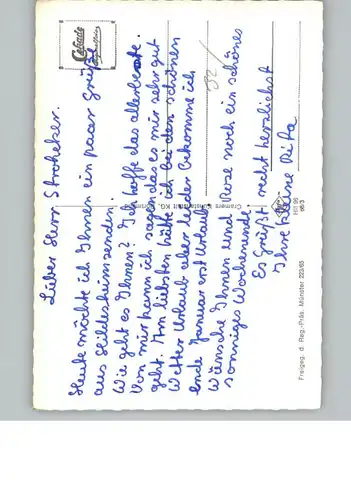 Lieber Herr Stroheker.
Heute möchte ich Ihnen ein paar Grüße
aus senden.
Wie geht es Ihnen? Ich hoffe das allerbeste.
Von mir kann ich sagen das es mir sehr gut
geht. Am liebsten hätte ich bei den schönen
Wetter Urlaub aber leider bekomme ich
ende Januar erst Urlaub.
Wünsche Ihnen und Rose noch ein schönes
sonniges Wochenende
Es Grüßt recht herzlichst
Ihre kleine Rita
Cekade
Cramers Kunstanstalt KG,
Freigeg. d. Reg.-Präs. Münster 223/65